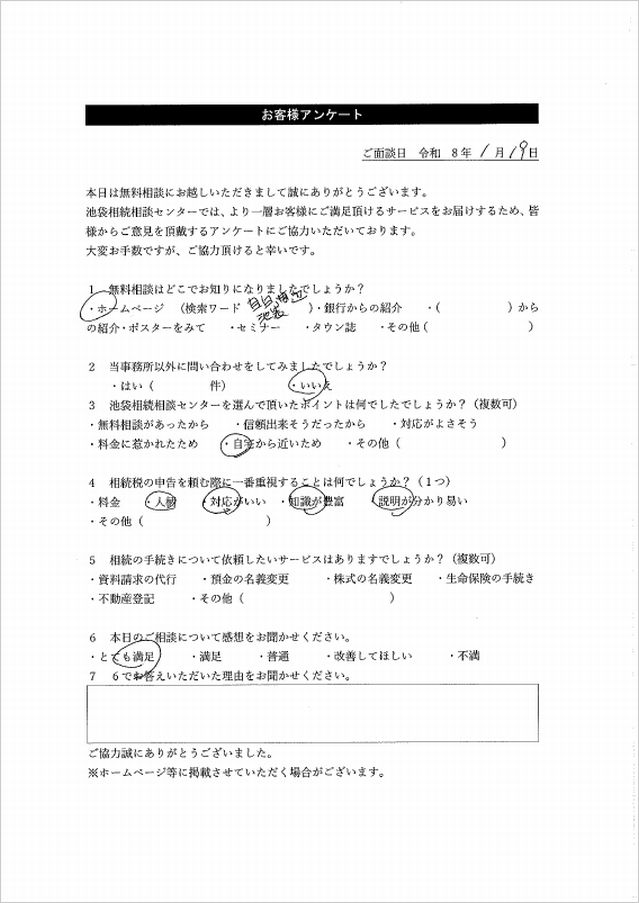 お客様アンケート
ご面談日 令和 8年 1月 19日
本日は無料相談にお越しいただきまして誠にありがとうございます。
池袋相続相談センターでは、より一層お客様にご満足頂けるサービスをお届けするため、皆
様からご意見を頂戴するアンケートにご協力いただいております。
大変お手数ですが、ご協力頂けると幸いです。
1 無料相談はどこでお知りになりましたでしょうか?
・ホームページ (検索ワード 目白 池袋 )・銀行からの紹介 ・( )から
の紹介・ポスターをみて ・セミナー ・タウン誌 ・その他( )
2 当事務所以外に問い合わせをしてみましたでしょうか?
・はい( 件) ・いいえ
3 池袋相続相談センターを選んで頂いたポイントは何でしたでしょうか?(複数可)
・無料相談があったから ・信頼出来そうだったから ・対応がよさそう
・料金に惹かれたため ・自宅から近いため ・その他( )
4 相続税の申告を頼む際に一番重視することは何でしょうか?(1つ)
・料金 ・人柄 ・対応がいい ・知識が豊富 ・説明が分かり易い
・その他( )
5 相続の手続きについて依頼したいサービスはありますでしょうか?(複数可)
・資料請求の代行 ・預金の名義変更 ・株式の名義変更 ・生命保険の手続き
・不動産登記 ・その他( )
6 本日のご相談について感想をお聞かせください。
・とても満足 ・満足 ・普通 ・改善してほしい ・不満
7 6でお答えいただいた理由をお聞かせください。
ご協力誠にありがとうございました。
※ホームページ等に掲載させていただく場合がございます。